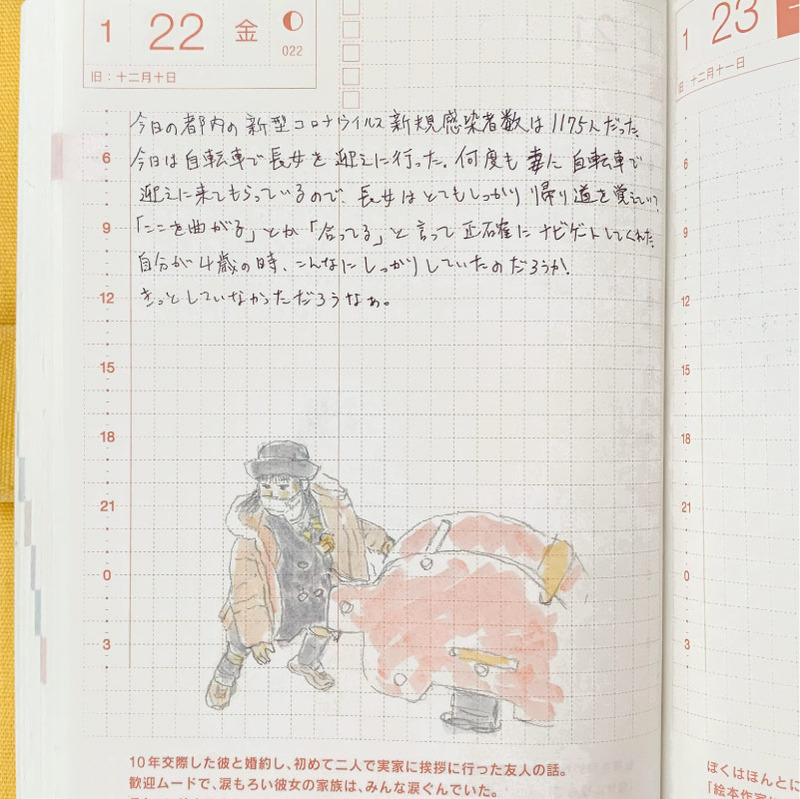 1 22 金
022
旧：十二月十日
今日の都内の新型コロナウイルス新規感染者数は1175人だった。
今日は自転車で長女を迎えに行った。何度も妻に自転車で
迎えに来てもらっているので、長女はとてもしっかり帰り道を覚えていて
「ここを曲がる」とか「合ってる」と言って正確にナビゲートしてくれた。
自分が4歳の時、こんなにしっかりしていたのだろうか。
きっとしていなかっただろうなぁ。
6
9
12
15
18
21
0
3
10年交際した彼と婚約し、初めて二人で実家に挨拶に行った友人の話。
歓迎ムードで、涙もろい彼女の家族は、みんな涙ぐんでいた。
1 23
旧：十二月十一日
6
9
12
15
18
21
0
3
ぼくはほんとに
「絵本作家に